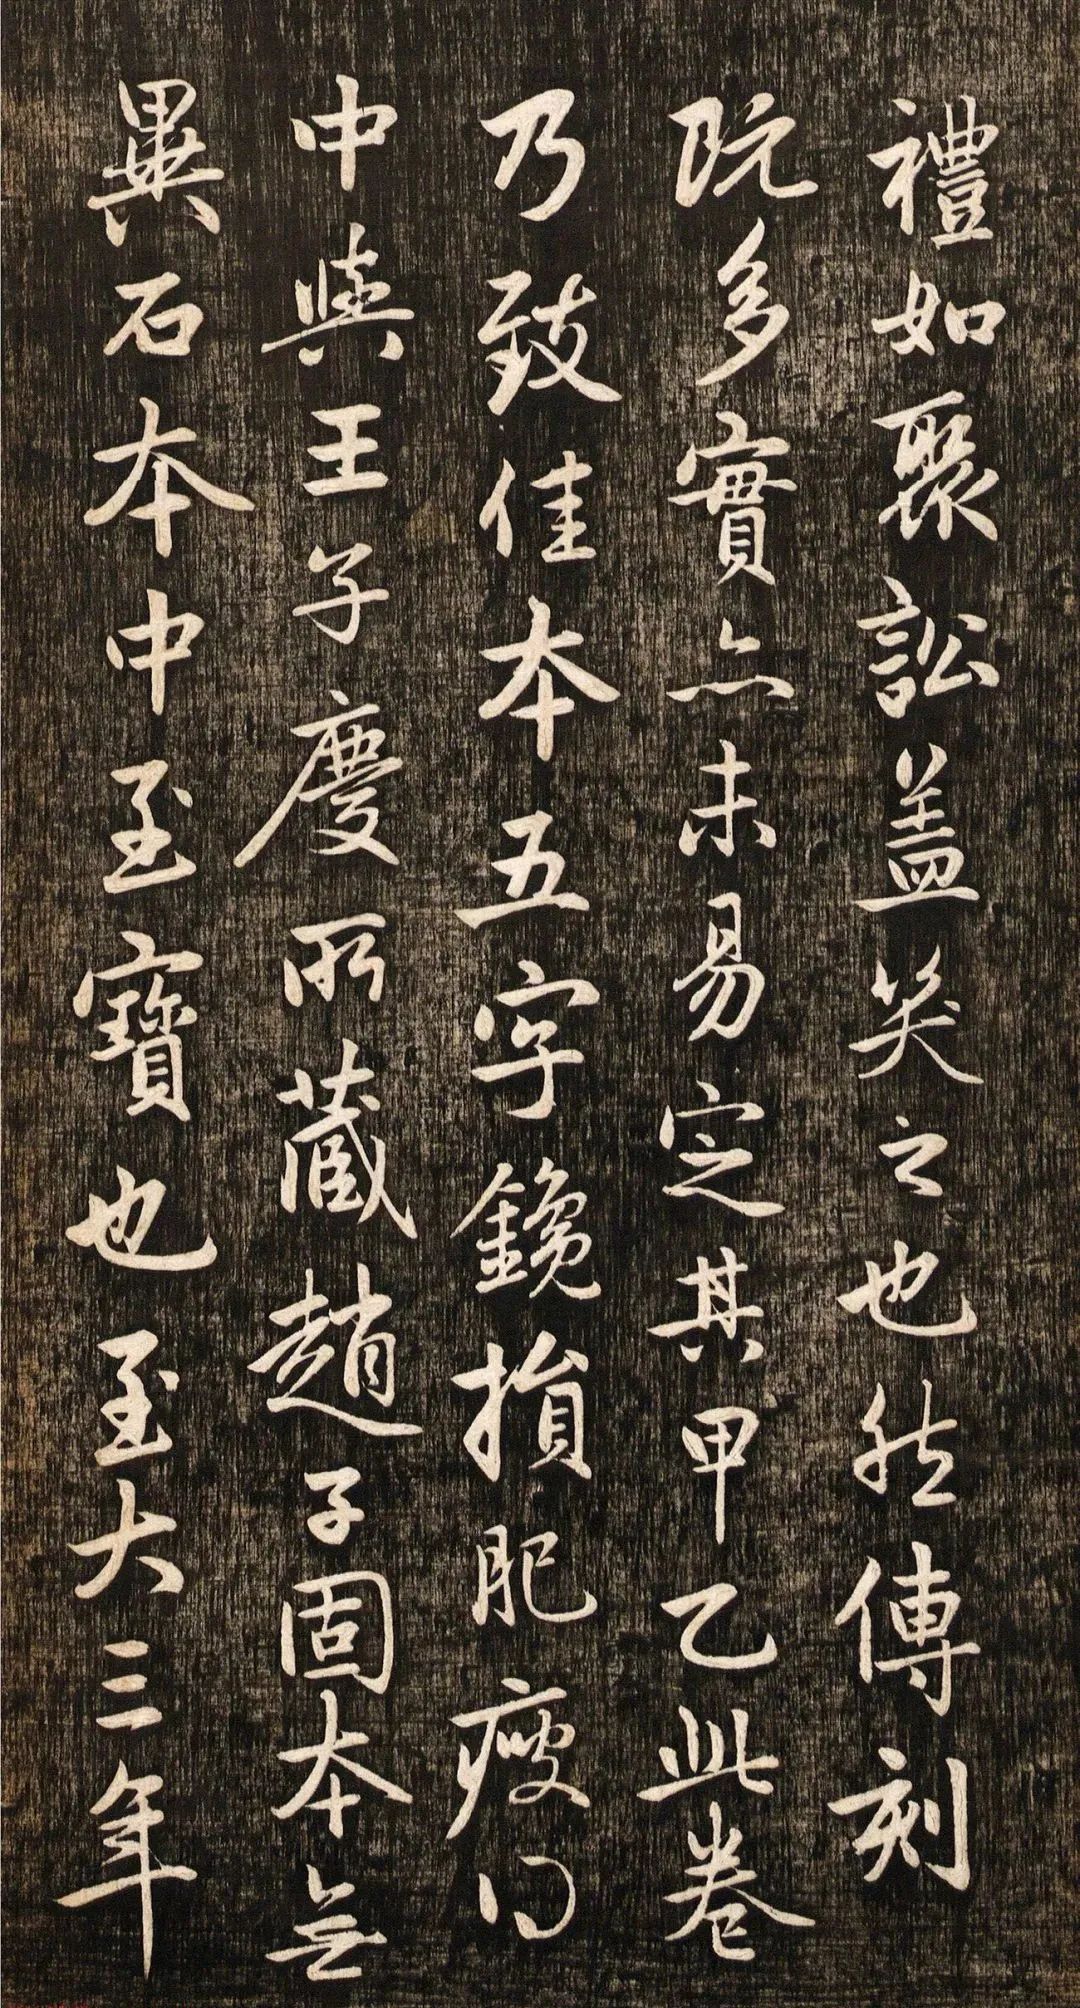 禮如聚訟蓋笑之也然傳刻
既多實亦未易定其甲乙此卷
乃致佳本五字鑱損肥瘦得
中與王子慶所藏趙子固本無
異石本中至寶也至大三年